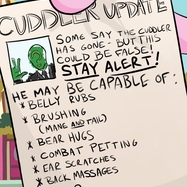 CUDDLER UPDATE
SOME SAY THE CUDDLER
HAS GONE - BUT THIS
COULD BE FALSE!
STAY ALERT!
HE MAY BE CAPABLE OF:
* BELLY RUBS
* BRUSHING
(MANE AND TAIL)
* BEAR HUGS
* COMBAT PETTING
* EAR SCRATCHES
* BACK MASSAGES